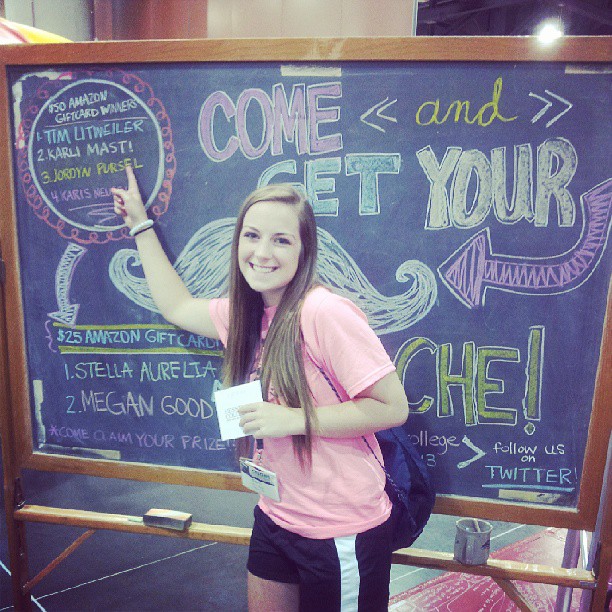 $50 AMAZON
GIFTCARD WINNERS
1. TIM LITWEILER
2. KARLI MAST!
3. JORDYN PURSEL
4. KARIS
COME << and >>
GET YOUR
CHE!
$25 AMAZON GIFTCARD
1. STELLA AURELIA
2. MEGAN GOOD
*COME CLAIM YOUR PRIZE!
ollege >
follow us
on
TWITTER!